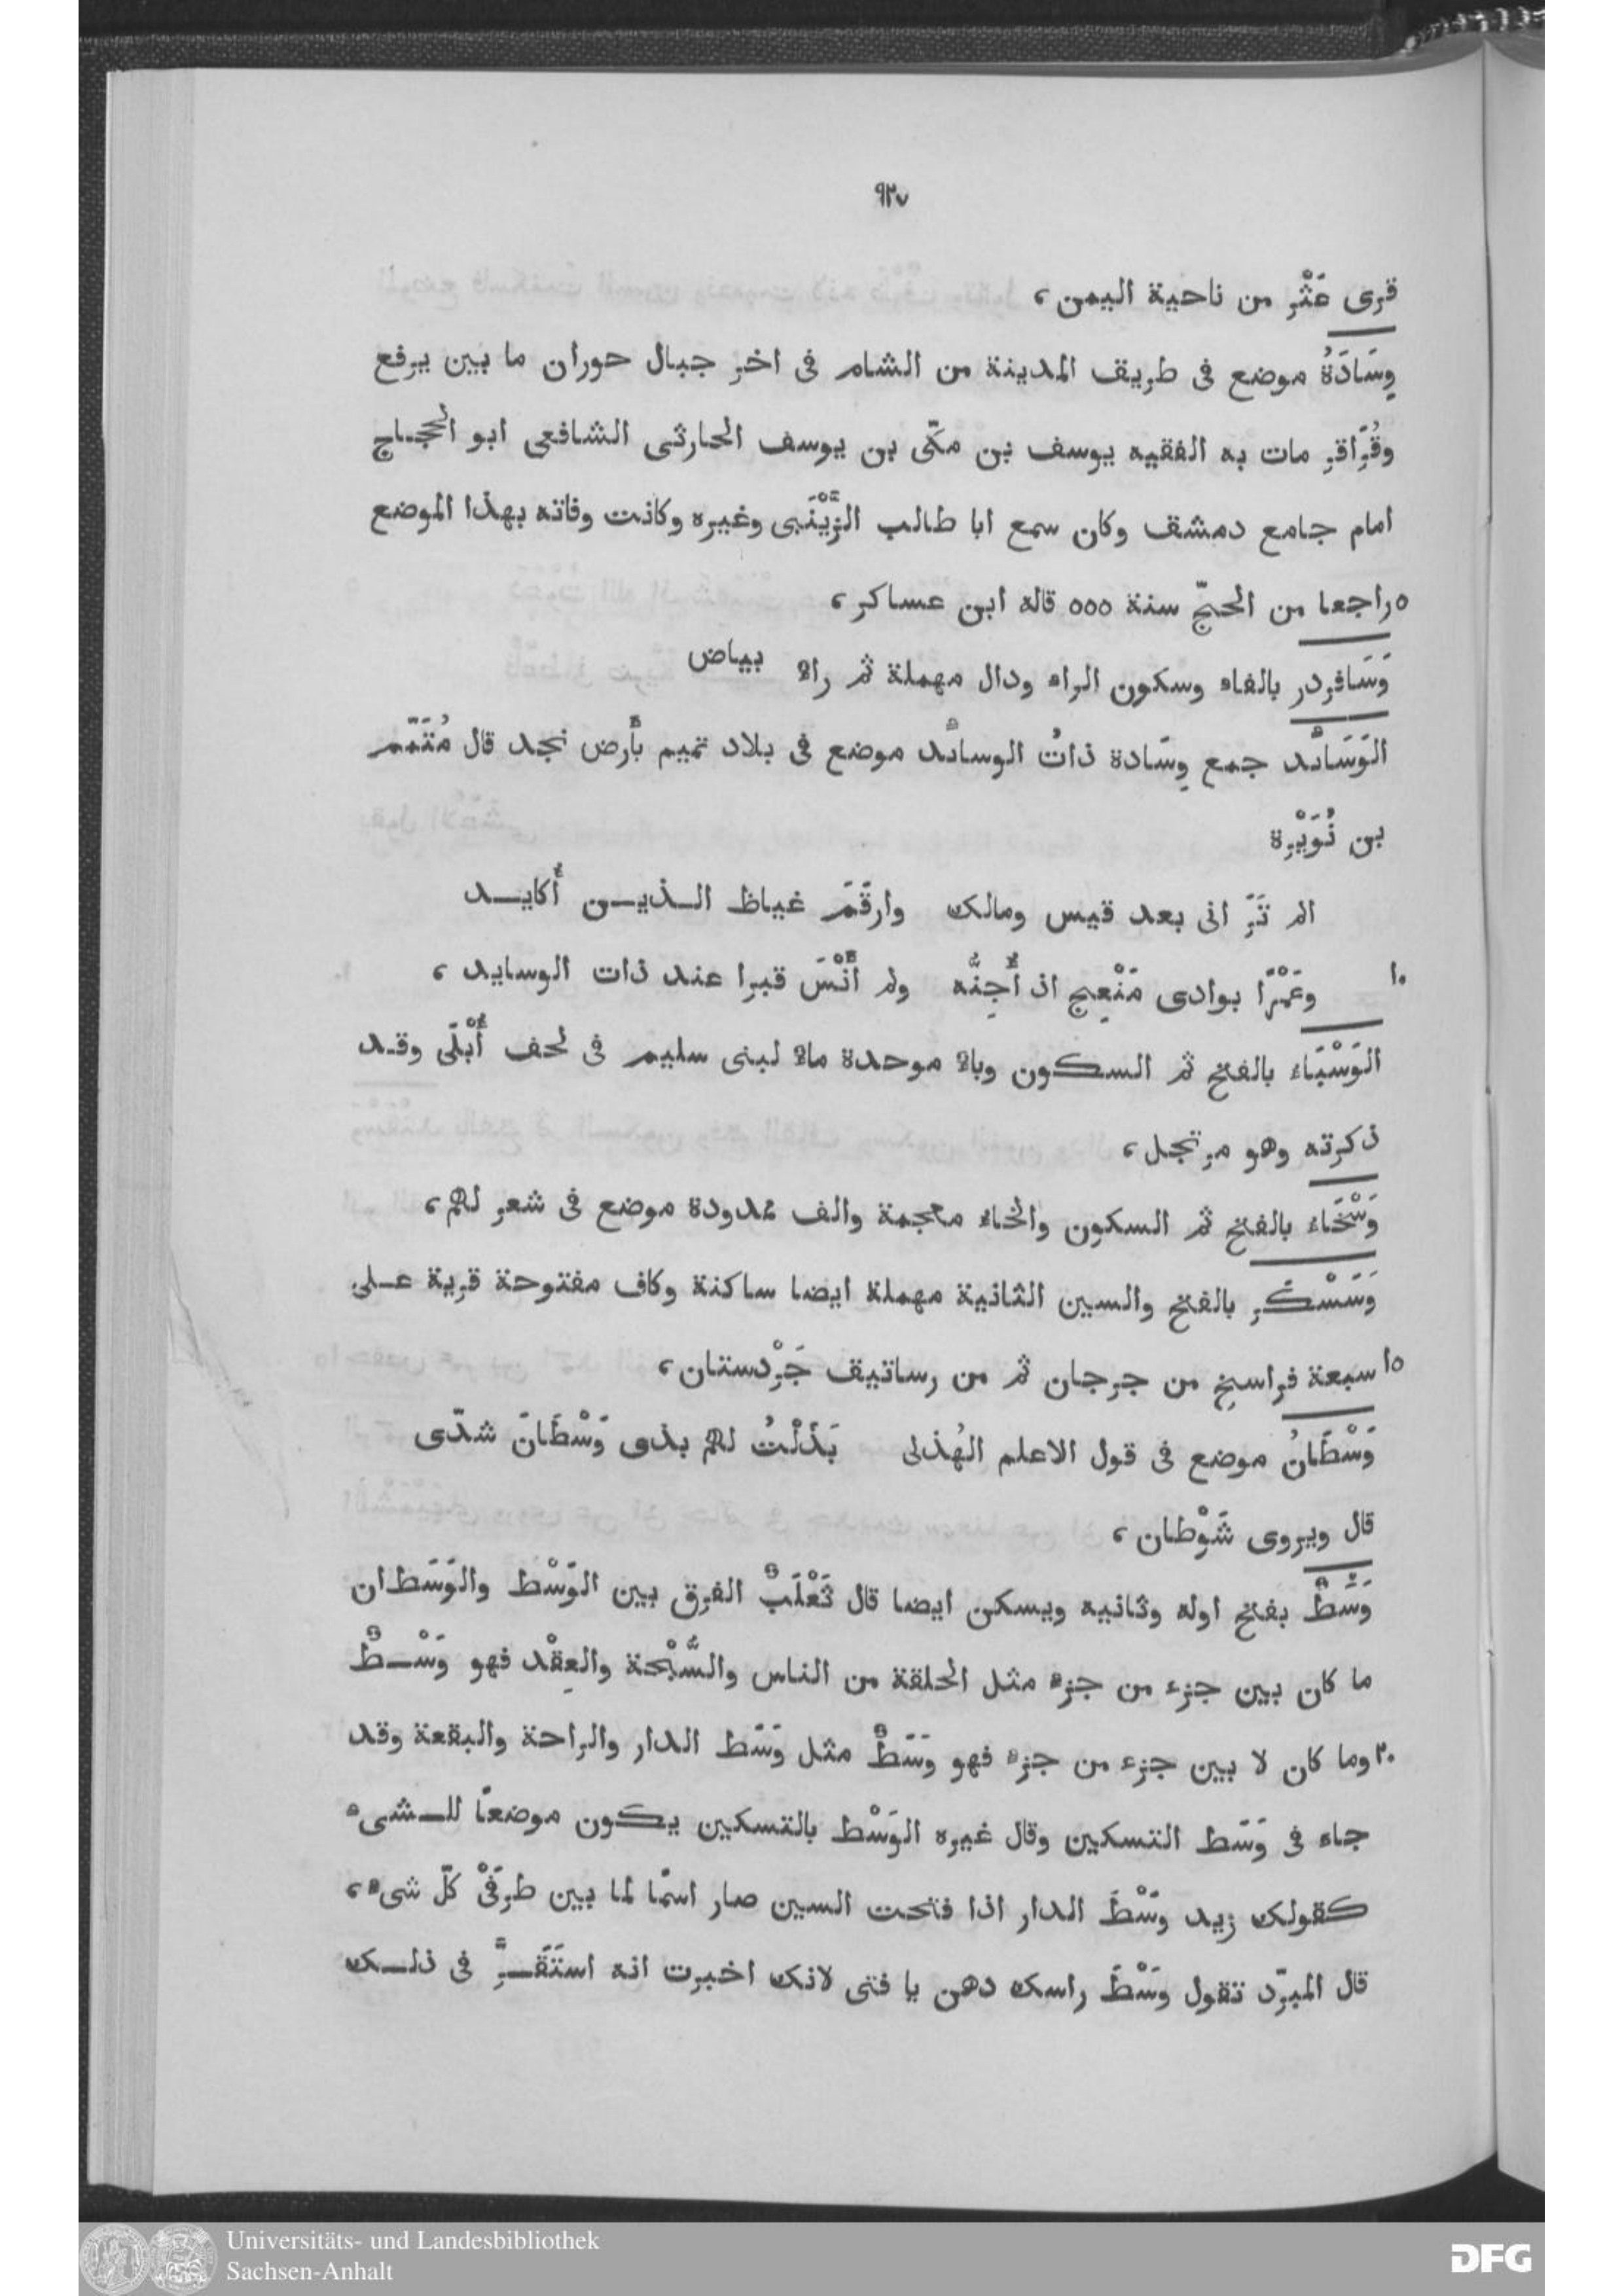 ٩٢٧
قرى عَثْر من ناحية اليمن ،
وِسَادَةُ موضع فى طريق المدينة من الشام فى اخر جبال حوران ما بين يرفع
وقُرَاقِر مات به الفقيه يوسف بن مكّى بن يوسف الحارثى الشافعى ابو الحجاج
امام جامع دمشق وكان سمع ابا طالب الزَّيْنَبى وغيره وكانت وفاته بهذا الموضع
٥ راجعا من الحجّ سنة ٥٥٥ قاله ابن عساكر ،
وَسَافِرْدر بالفاء وسكون الراء ودال مهملة ثم راء بياض
الوَسَائد جمع وِسَادة ذاتُ الوسائد موضع فى بلاد تميم بأرض نجد قال مُتَمّم
بن نُوَيْرة
الم تَرَ انى بعد قيس ومالك وارقَمَ غياظ الذين أُكايد
١٠ وعَمْرًا بوادى مَنْعِج اذ أُجِنُّه ولم أَنْسَ قبرا عند ذات الوسايد ،
الوَسْبَاء بالفتح ثم السكون وباء موحدة ماء لبنى سليم فى لحف أُبْلَى وقد
ذكرته وهو مرتجل ،
وَسْخَاء بالفتح ثم السكون والخاء معجمة والف ممدودة موضع فى شعر لهم ،
وَسَسْكَر بالفتح والسين الثانية مهملة ايضا ساكنة وكاف مفتوحة قرية على
١٥ سبعة فراسخ من جرجان ثم من رساتيق جَرْدستان ،
وَسْطَانُ موضع فى قول الاعلم الهُذلى بَذَلْتُ لهم بذى وَسْطَانَ شدّى
قال ويروى شَوْطان ،
وَسَطٌ بفتح اوله وثانيه ويسكن ايضا قال ثَعْلَبٌ الفرق بين الوَسْط والوَسَط ان
ما كان بين جزء من جزء مثل الحلقة من الناس والسُّبْحة والعِقْد فهو وَسْطٌ
٢٠ وما كان لا بين جزء من جزء فهو وَسَطٌ مثل وَسَط الدار والراحة والبقعة وقد
جاء فى وَسَط التسكين وقال غيره الوَسْط بالتسكين يكون موضعًا للشىء
كقولك زيد وَسْطَ الدار اذا فتحت السين صار اسمًا لما بين طرفَىْ كلّ شىء ،
قال المبرّد تقول وَسْطَ راسك دهن يا فتى لانك اخبرت انه استَقَرَّ فى ذلك
Universitäts- und Landesbibliothek
Sachsen-Anhalt
DFG